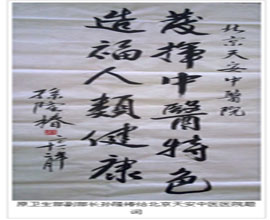 北京天安中醫院
發揮中醫特色
造福人類健康
孫隆椿
原卫生部副部长孙隆椿给北京天安中医医院题
词